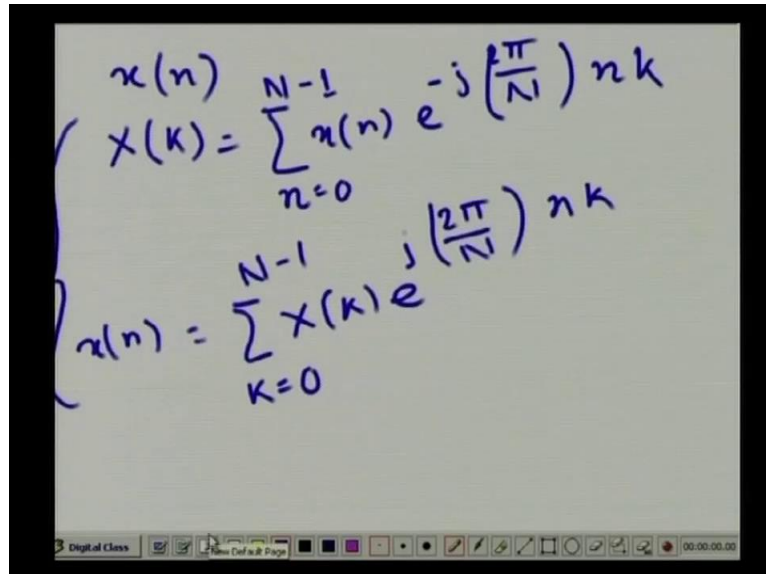 x(n)
X(K) = N-1 ∑ n=0 x(n) e^-j(2π/N)nk
x(n) = N-1 ∑ K=0 X(K) e^j(2π/N)nk
Digital Class
New Default Page
00:00:00.00